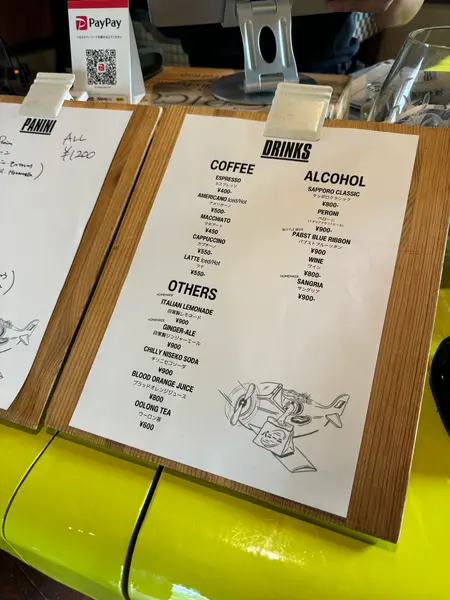 PayPay
PANINI
ALL
¥1,200
DRINKS
COFFEE
ESPRESSO
エスプレッソ
¥400-
AMERICANO Iced/Hot
アメリカーノ
¥500-
MACCHIATO
マキアート
¥450
CAPPUCCINO
カプチーノ
¥550-
LATTE Iced/Hot
ラテ
¥550-
OTHERS
HOMEMADE
ITALIAN LEMONADE
自家製レモネード
¥900
HOMEMADE
GINGER-ALE
自家製ジンジャーエール
¥900
CHILLY NISEKO SODA
チリニセコソーダ
¥900
BLOOD ORANGE JUICE
ブラッドオレンジジュース
¥800
OOLONG TEA
ウーロン茶
¥600
ALCOHOL
SAPPORO CLASSIC
サッポロクラシック
¥800-
PERONI
ペローニ
¥900-
PABST BLUE RIBBON
パブストブルーリボン
¥900
WINE
ワイン
¥800-
HOMEMADE
SANGRIA
サングリア
¥900-